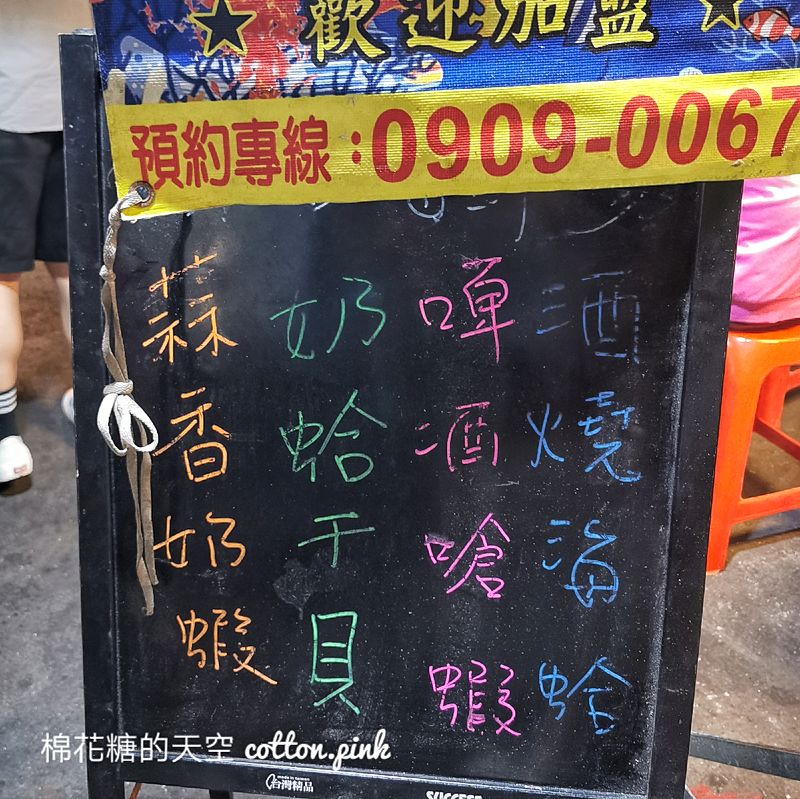 歡迎加盟
預約專線：0909-0067
酒燒海蛤
啤酒嗆蝦
奶蛤干貝
蒜香奶蝦
棉花糖的天空 cotton.pink
made in taiwan
台灣精品
SUCCESS